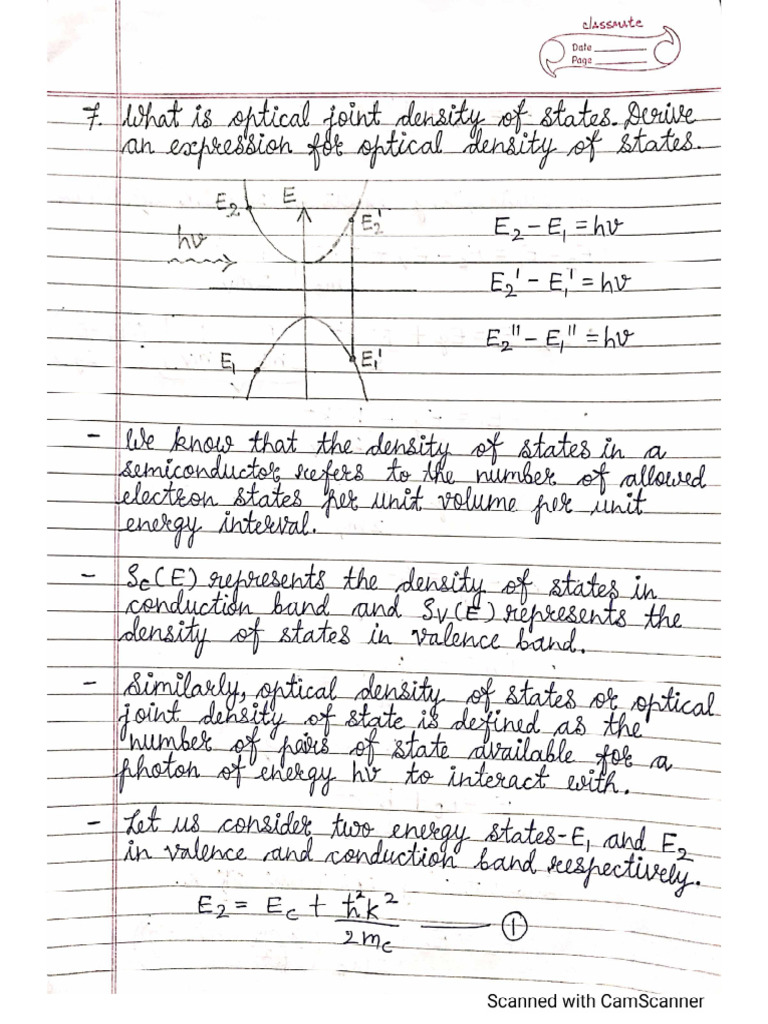 classmate
Date
Page
7. What is optical joint density of states. Derive
an expression for optical density of states.
E₂ E E₂'
hν
E₁ E₁'
E₂ – E₁ = hν
E₂' – E₁' = hν
E₂'' – E₁'' = hν
- We know that the density of states in a
semiconductor refers to the number of allowed
electron states per unit volume per unit
energy interval.
- Sc(E) represents the density of states in
conduction band and Sv(E) represents the
density of states in valence band.
- Similarly, optical density of states or optical
joint density of state is defined as the
number of pairs of state available for a
photon of energy hν to interact with.
- Let us consider two energy states-E₁ and E₂
in valence and conduction band respectively.
E₂ = Ec + ħ²k²/2mc ——— ①
Scanned with CamScanner